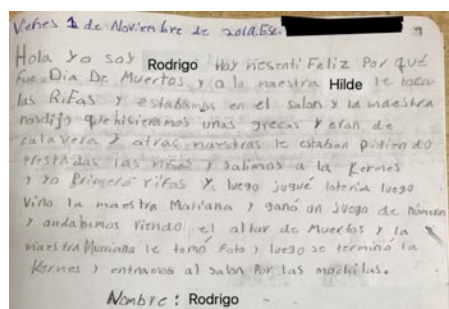 Viernes 1 de Noviembre de 2019. Esc.
Hola yo soy Rodrigo Hoy me senti Feliz Por qué
fue Dia De Muertos y a la maestra Hilde le toca
las Rifas y estabamos en el salon y la maestra
nosdijo que hisieramos unas grecas y eran de
calavera y atras maestras le estaban pidiendo
prestadas las niñas y salimos a la Kermes
y yo Primero rifas y luego jugué loteria luego
Vino la maestra Mariana y ganó un juego de
y andabamos viendo el altar de Muertos y la
maestra Mariana le tomó Foto y luego se terminó la
Kermes y entramos al salon Por las mochilas.
Nombre: Rodrigo